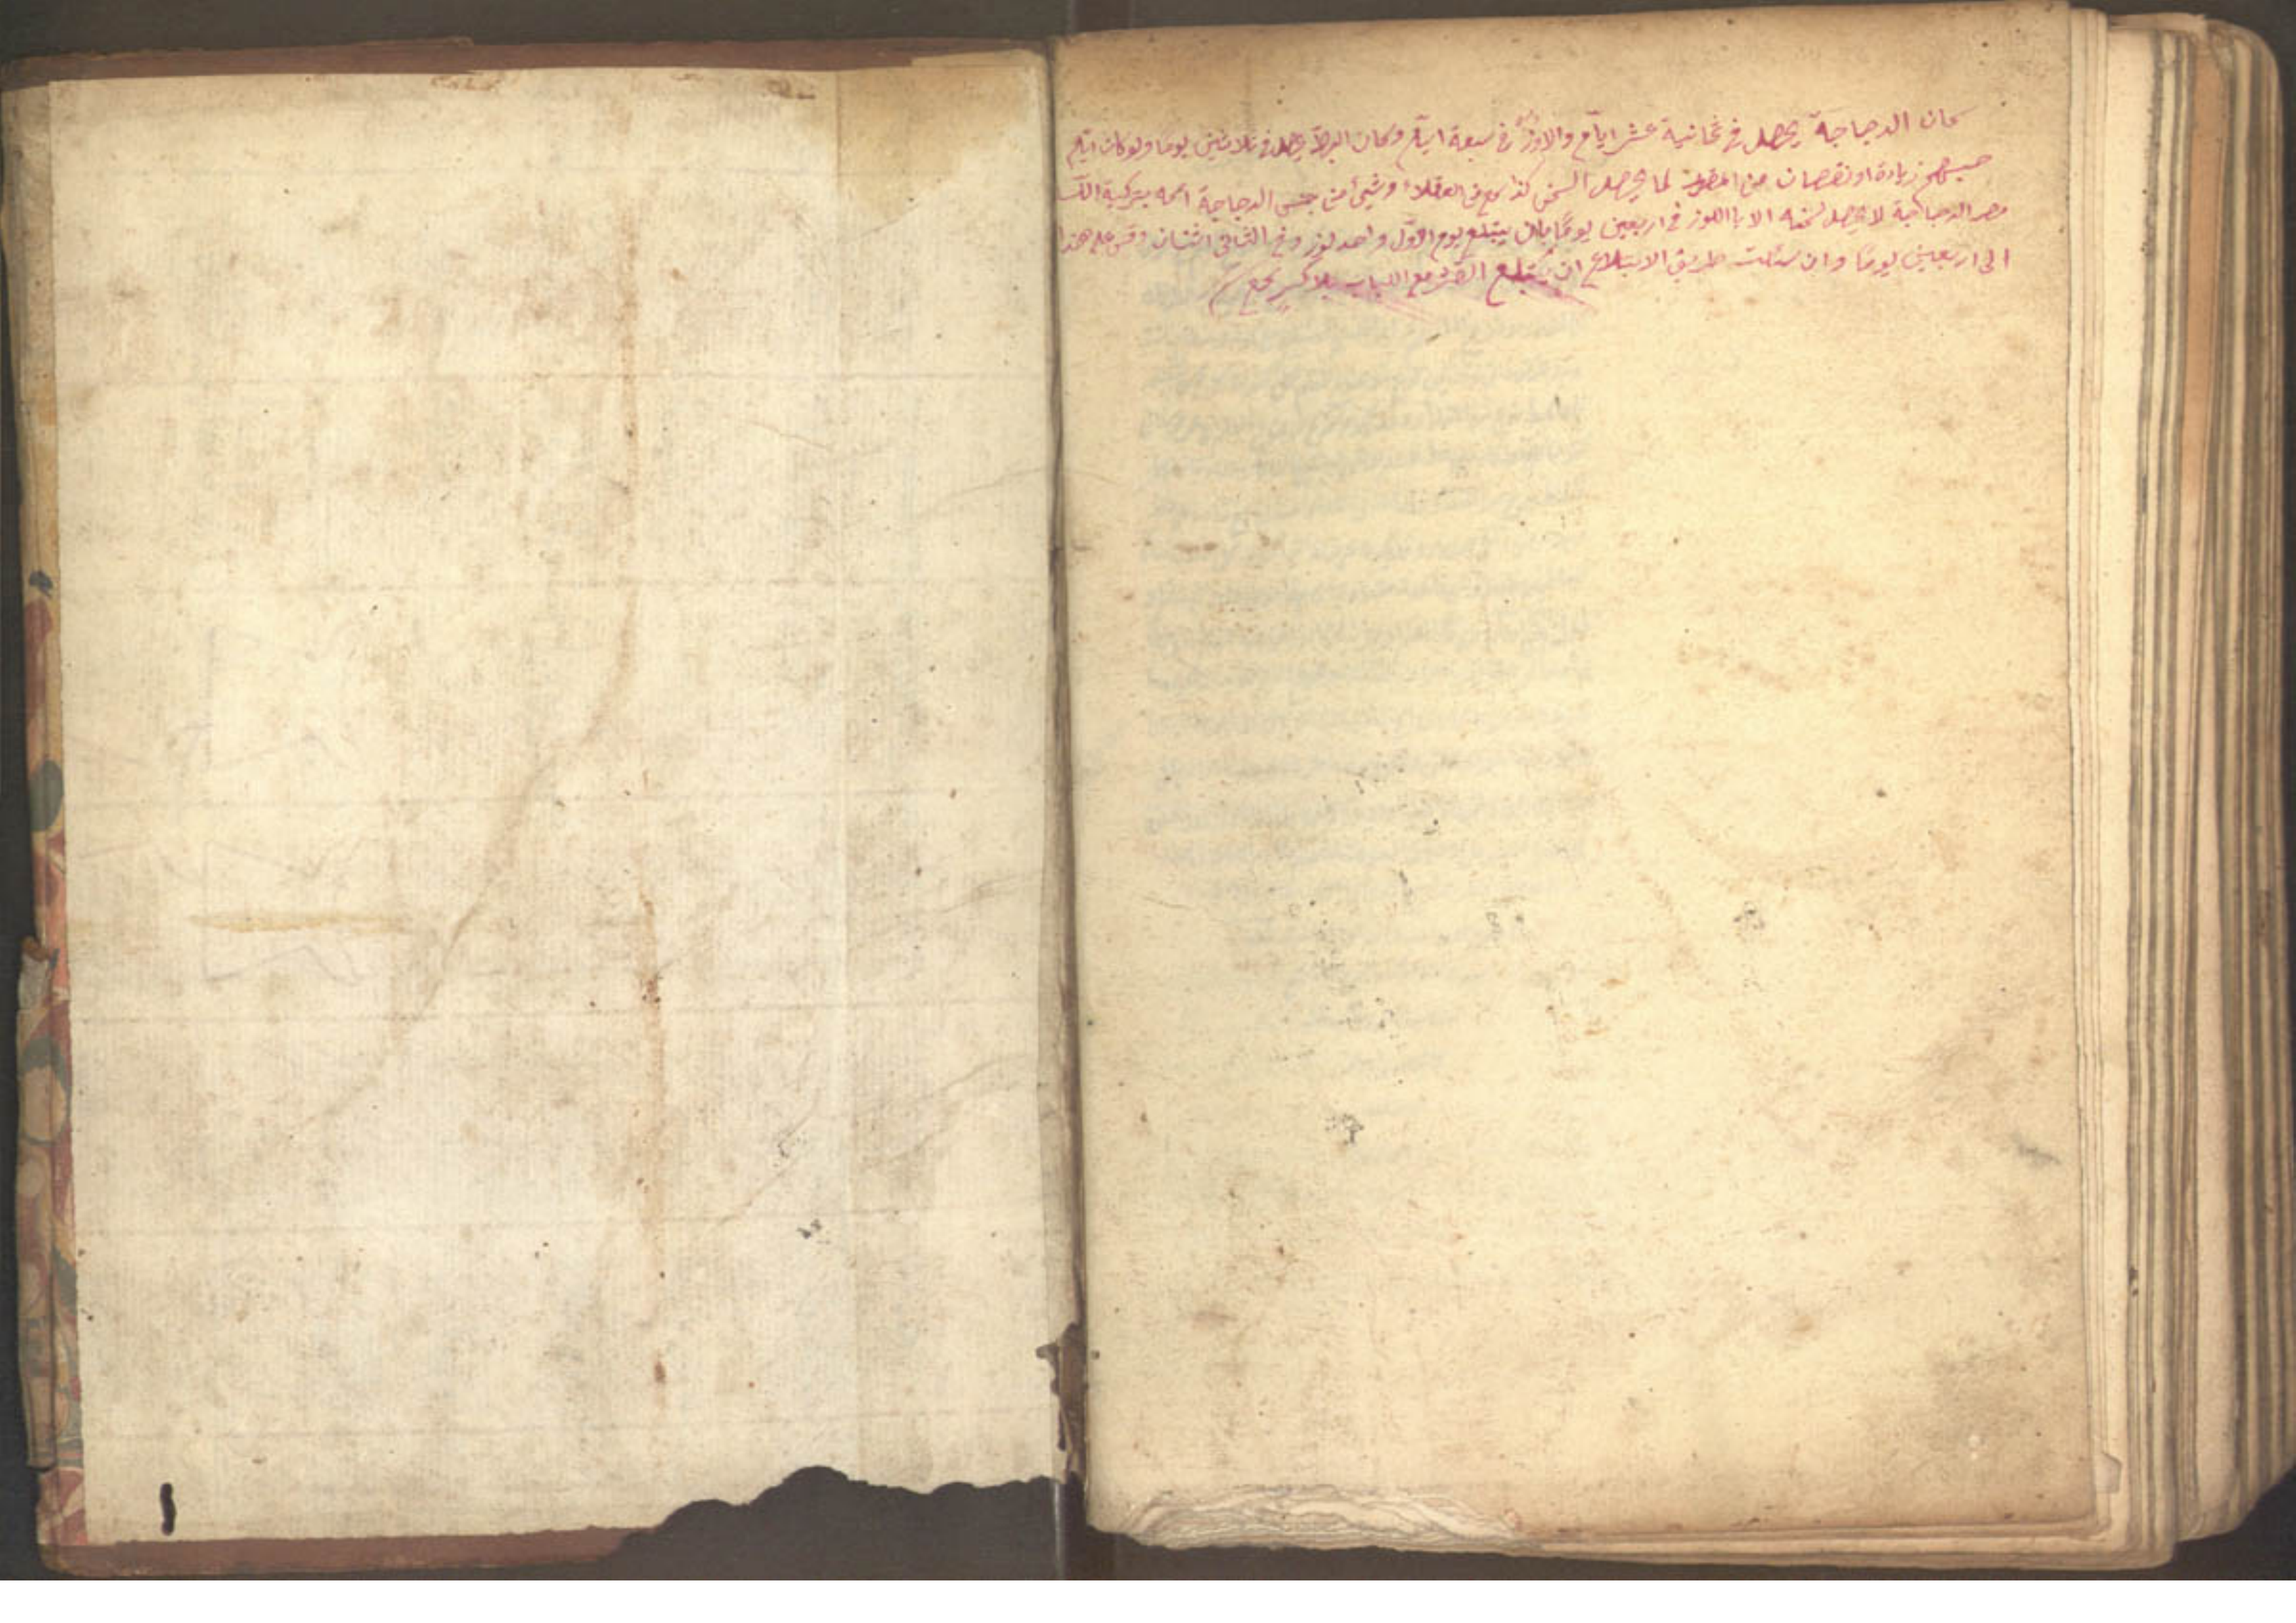 كان الدجاجة يحصل في ثمانية عشر ايام والاوز في سبعة ايام وكان البط يحصل في ثلاثين يوما ولو كان ايام
حبسهم زيادة او نقصان من لما يحصل السمن كذا سمع من العقلاء وشيئ من جنس الدجاجة اسمه بتركية
مصر الدجاجة لا يحصل سمنه الا باللوز في اربعين يوما بان يبتلع يوم الاول واحد لوز وفي الثاني اثنان وقس على هذا
الى اربعين يوما وان سئلت طريق الابتلاع ان يبتلع القشر مع اللباب بلا كسر